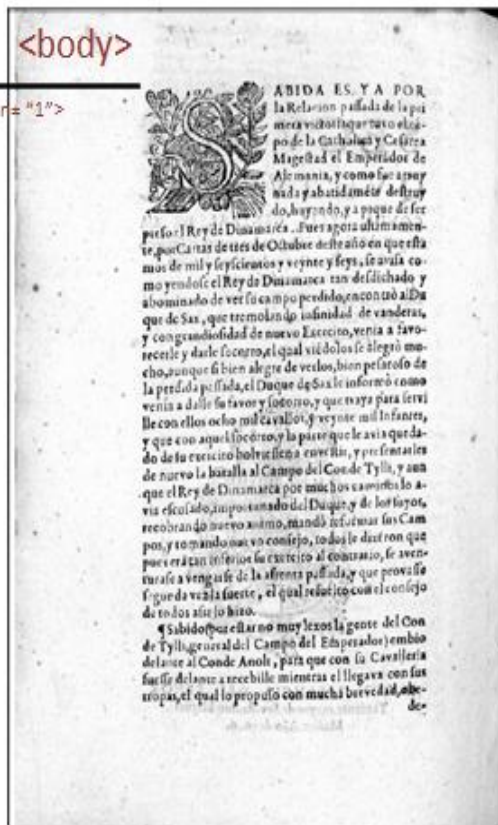 <body>
r="1">
SABIDA ES. YA POR
la Relacion passada de la pri
mera victoria que tuvo el cã-
po de la Catholica y Cesarea
Magestad el Emperador de
Alemania, y como fue arruy
nada y abatidamẽte destruy
do, huyendo, y a pique de ser
preso el Rey de Dinamarca. Pues agora ultimamen-
te, por Cartas de tres de Octubre deste año en que esta
mos de mil y seyscientos y veynte y seys, se avisa co-
mo yendose el Rey de Dinamarca tan desdichado y
abominado de ver su campo perdido, encontrò al Du
que de Sax, que tremolando infinidad de vanderas,
y con grandiosidad de nuevo Exercito, venia a favo-
recerle y darle socorro, el qual viẽdolos se alegrò mu-
cho, aunque si bien alegre de verlos, bien pesaroso de
la perdida passada, el Duque de Sax le informò como
venia a dalle su favor y socorro, y que traya para servi
lle con ellos ocho mil cavallos, y veynte mil Infantes,
y que con aquel socorro, y la parte que le avia queda-
do de su exercito bolviessen a envestir, y presentarles
de nuevo la batalla al Campo del Conde Tylli, y aun
que el Rey de Dinamarca por muchos caminos lo a-
via escusado, importunado del Duque, y de los suyos,
recobrando nuevo animo, mandò reformar sus Cam
pos, y tomando nuevo consejo, todos le dixeron que
pues erã tan inferior su exercito al contrario, se aven-
turasse a vengarse de la afrenta passada, y que provasse
segunda vez la suerte, el qual resuelto con el consejo
de todos assi lo hizo.
¶ Sabido (por estar no muy lexos la gente del Con
de Tylli, general del Campo del Emperador) embio
delante al Conde Anolt, para que con su Cavalleria
fuesse delante a recebille mientras el llegava con sus
tropas, el qual lo propuso con mucha brevedad, obe-
de-